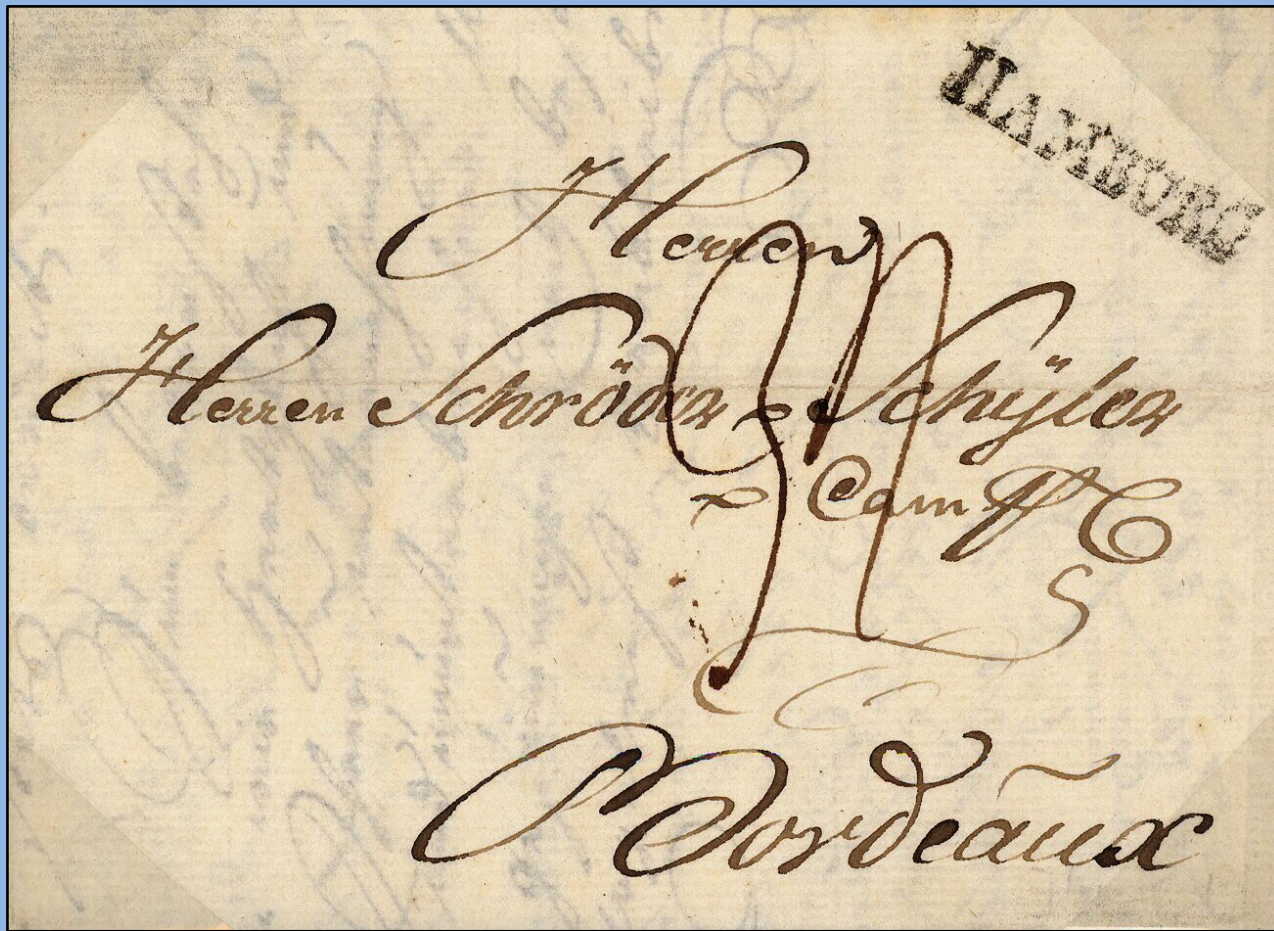 HAMBURG
Herren
Herren Schröder & Schÿler
& Comp
Bordeaŭx